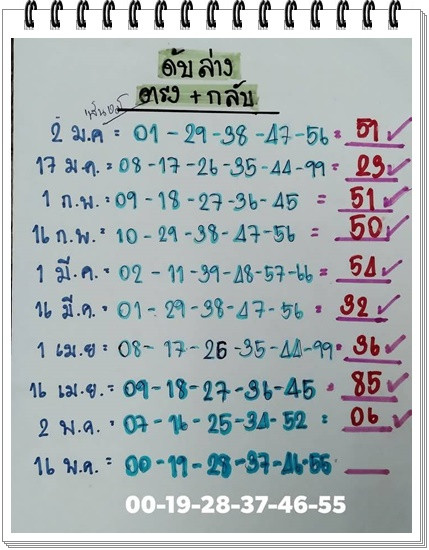 ดับล่าง
ตรง + กลับ
2 ม.ค = 01 - 29 - 38 - 47 - 56 = 51 ✓
17 ม.ค. = 08 - 17 - 26 - 35 - 44 - 99 = 23 ✓
1 ก.พ. = 09 - 18 - 27 - 36 - 45 = 51 ✓
16 ก.พ. = 10 - 29 - 38 - 47 - 56 = 50 ✓
1 มี.ค. = 02 - 11 - 39 - 48 - 57 - 66 = 54 ✓
16 มี.ค. = 01 - 29 - 38 - 47 - 56 = 32 ✓
1 เม.ย = 08 - 17 - 26 - 35 - 44 - 99 = 36 ✓
16 เม.ย. = 09 - 18 - 27 - 36 - 45 = 85 ✓
2 พ.ค. = 07 - 16 - 25 - 34 - 52 = 06 ✓
16 พ.ค. = 00 - 19 - 28 - 37 - 46 - 55
00-19-28-37-46-55